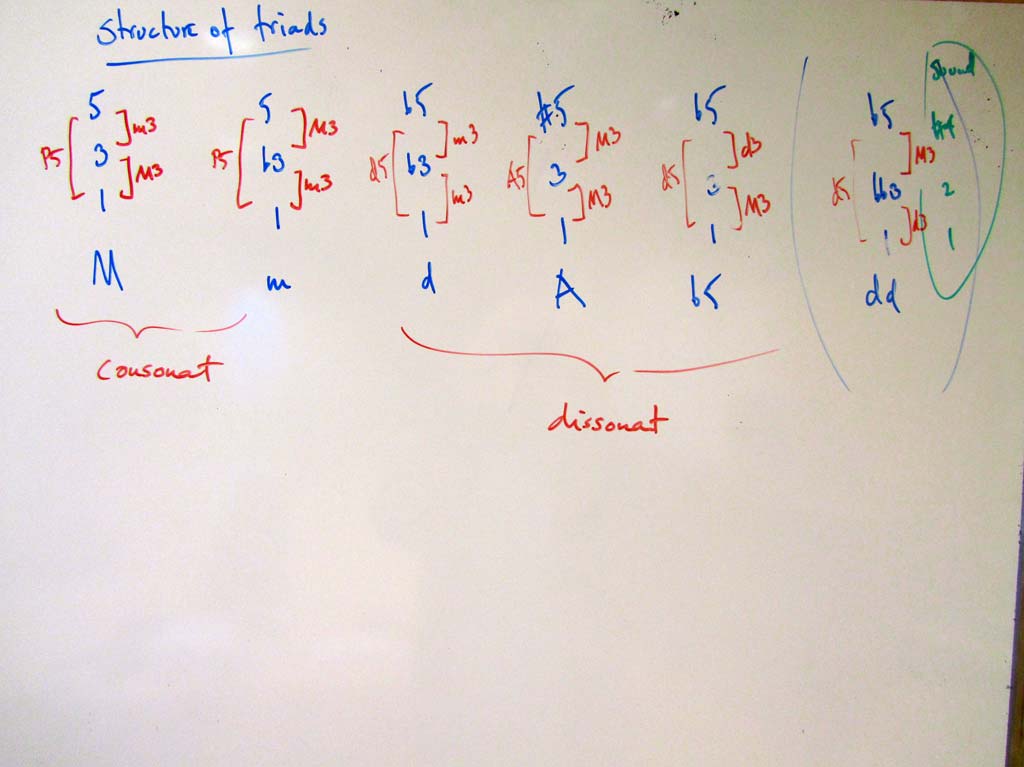 structure of triads
sound
5 5 b5 #5 b5 b5 #4
m3 M3 m3 M3 d3 M3
P5 3 P5 b3 d5 b3 A5 3 d5 3 d5 bb3 2
M3 m3 m3 M3 M3 d3
1 1 1 1 1 1 1
M m d A b5 dd
consonat
dissonat